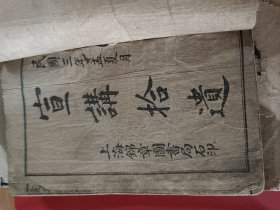 民國三年孟夏月
宣講拾遺
上海錦章圖書局石印